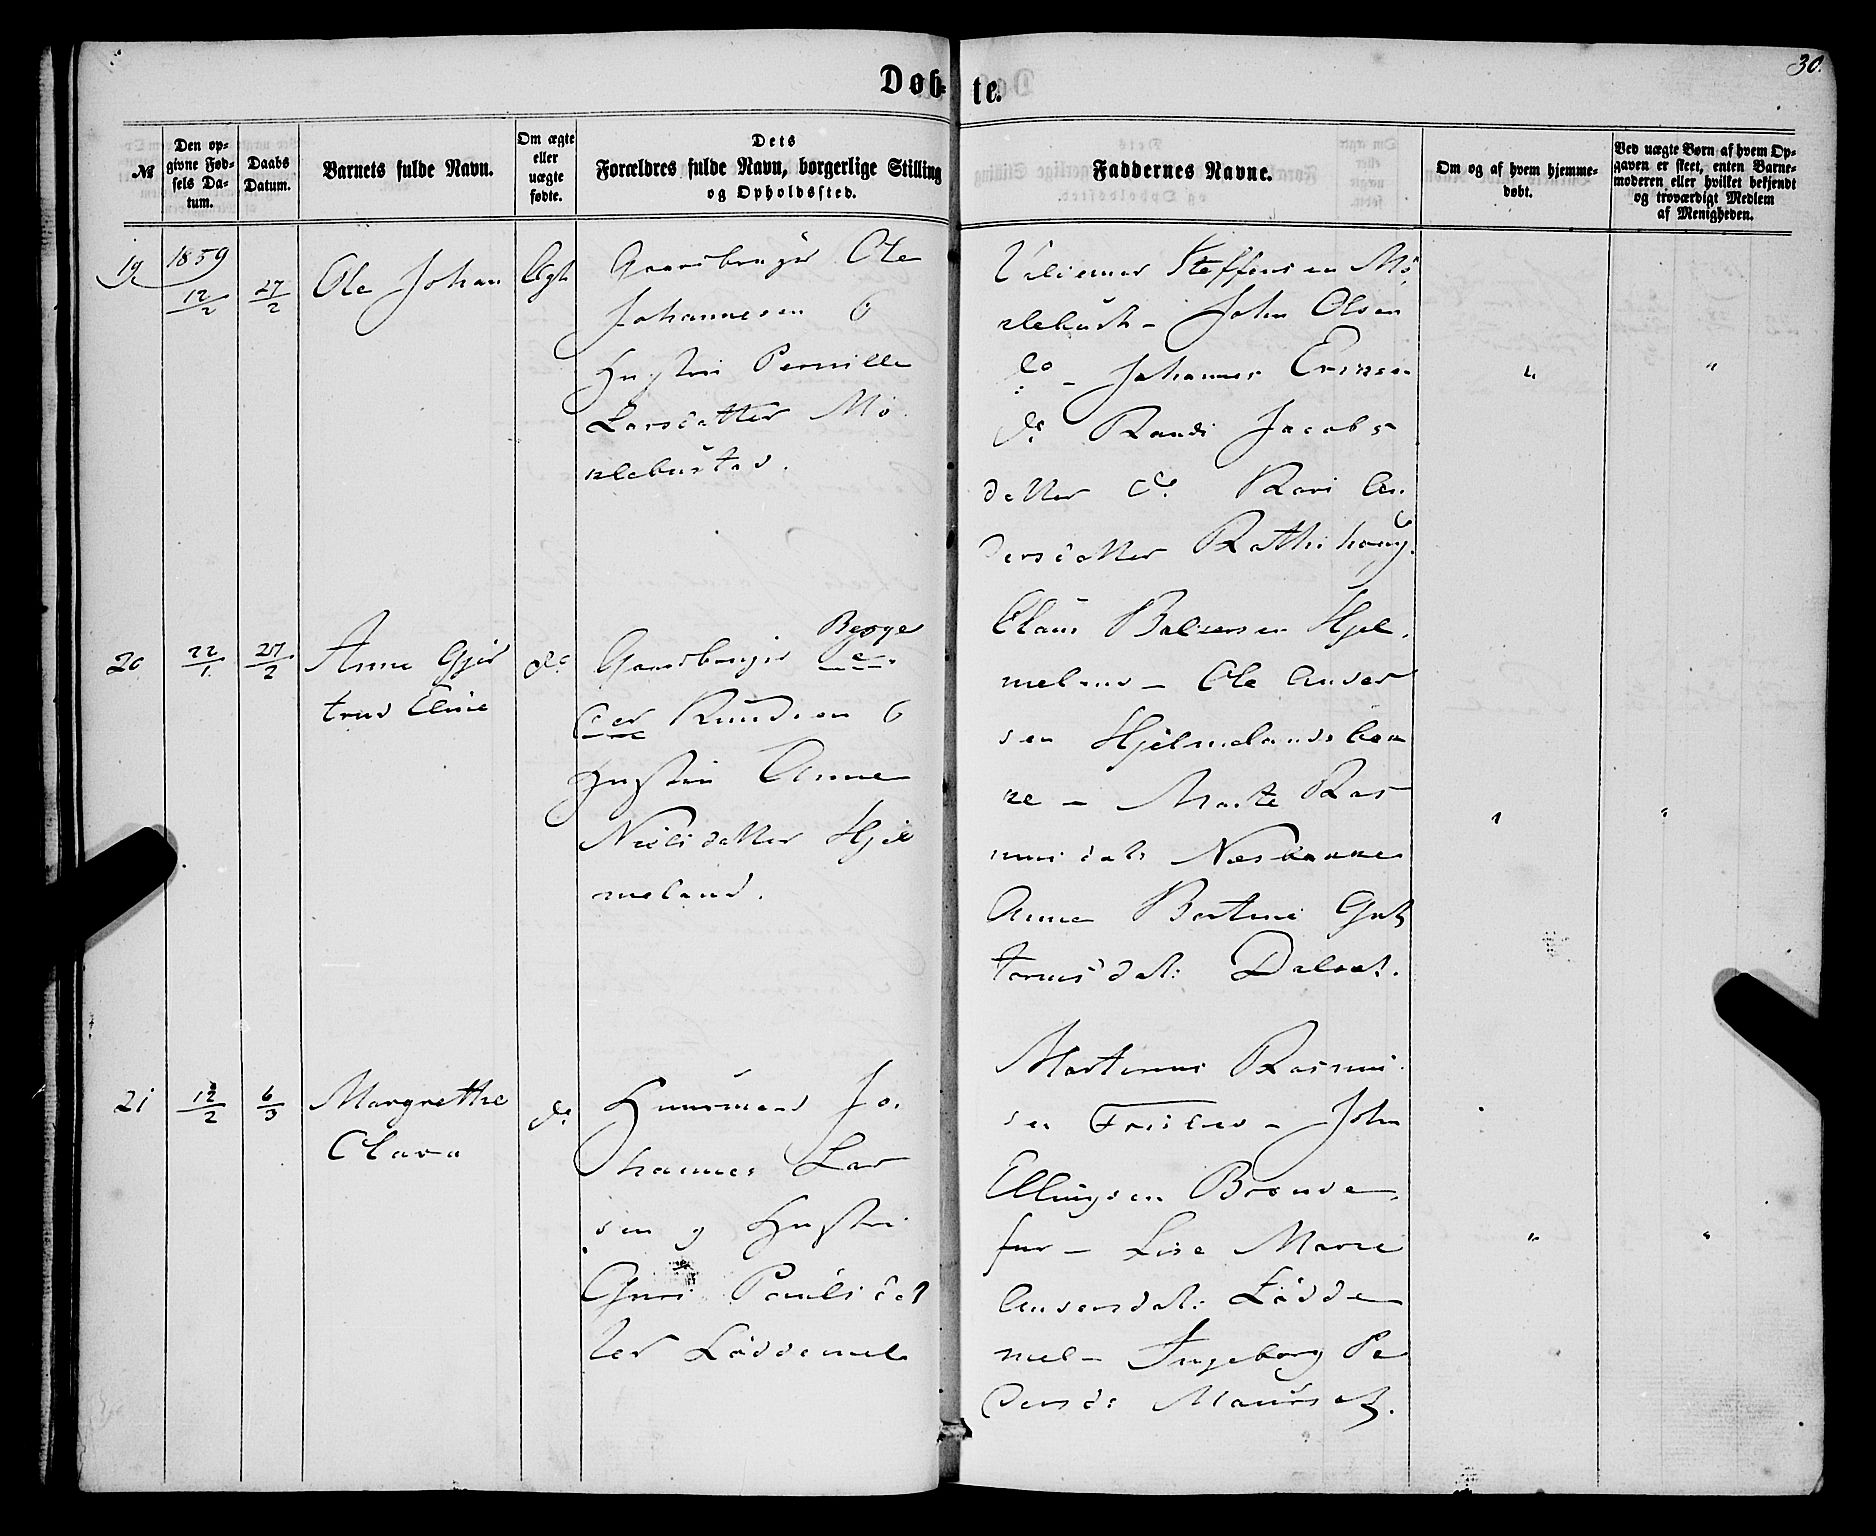 Døb-
te.
30.
№
Den op-
givne Fød-
sels Da-
tum.
Daabs
Datum.
Barnets fulde Navn.
Om ægte
eller
uægte
fødte.
Dets
Forældres fulde Navn, borgerlige Stilling
og Opholdssted.
Faddernes Navne.
Om og af hvem hjemme-
døbt.
Ved uægte Børn af hvem Op-
gaven er skeet, enten Barne-
moderen eller hvilket bekjendt
og troværdigt Medlem
af Menigheden.
19
1859
12/2
27/2
Ole Johan
Ægt
Gaardbruger Ole
Johannesen &
Hustru Pernille
Larsdatter Mö
klebustad.
Steffensen Mö
klebust - John Olsen
do - Johannes
do Randi Jacobs
datter do Kari An
dersdatter
"
"
20
22/1
27/2
Anne Gjer
trud Eline
do
Gaardbruger Berge
Knudsen &
Hustru Anne
Nielsdatter Hjel
meland.
Claus Hjel
meland - Ole Ander
sen Hjelmelands
- Marte Ras
musdatr
Anne Bertine Gut
tormsdatr
"
"
21
12/2
6/3
Margrethe
Clara
do
Huusmand Jo
hannes Lar
sen & Hustru
Guri Paulsdat
ter Löddemel
Martinus Rasmu
sen - John
Ellingsen
- Lise Marie
Andersdatr Lödde
mel - Ingeborg Pe
dersdr Maurset.
"
"